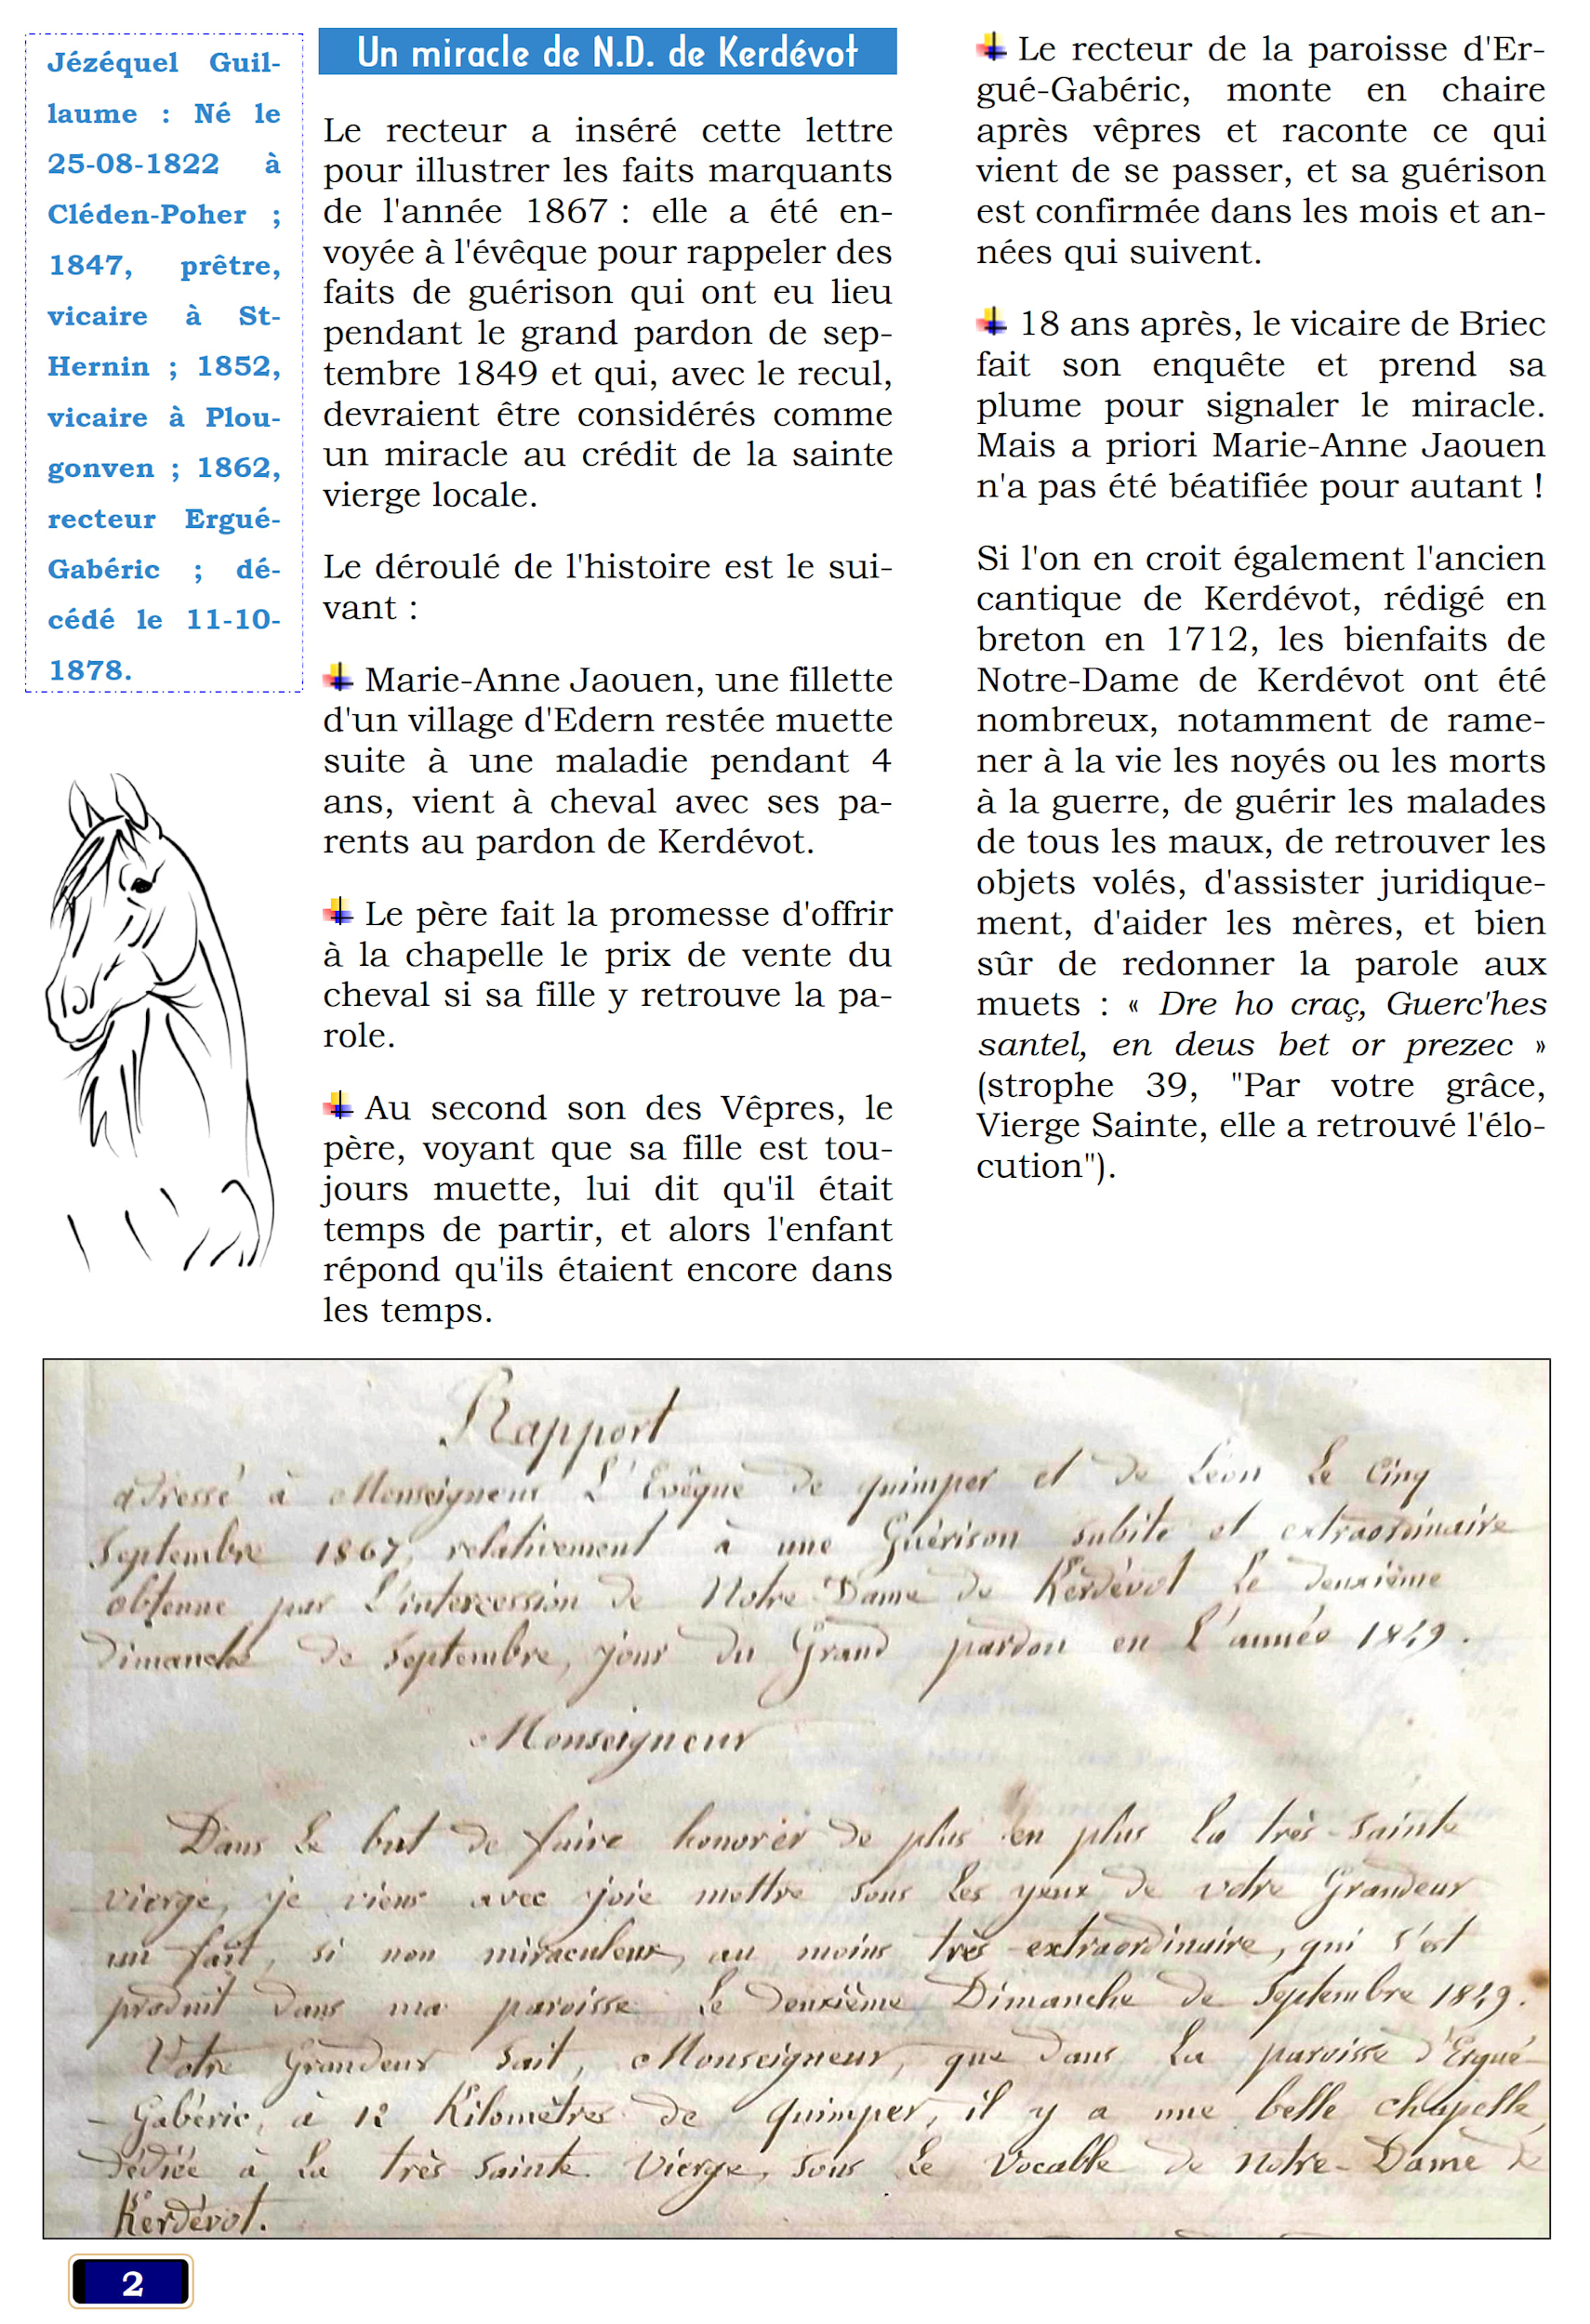 Jézéquel Guil-
laume : Né le
25-08-1822 à
Cléden-Poher ;
1847, prêtre,
vicaire à St-
Hernin ; 1852,
vicaire à Plou-
gonven ; 1862,
recteur Ergué-
Gabéric ; dé-
cédé le 11-10-
1878.
Un miracle de N.D. de Kerdévot
Le recteur a inséré cette lettre
pour illustrer les faits marquants
de l'année 1867 : elle a été en-
voyée à l'évêque pour rappeler des
faits de guérison qui ont eu lieu
pendant le grand pardon de sep-
tembre 1849 et qui, avec le recul,
devraient être considérés comme
un miracle au crédit de la sainte
vierge locale.
Le déroulé de l'histoire est le sui-
vant :
Marie-Anne Jaouen, une fillette
d'un village d'Edern restée muette
suite à une maladie pendant 4
ans, vient à cheval avec ses pa-
rents au pardon de Kerdévot.
Le père fait la promesse d'offrir
à la chapelle le prix de vente du
cheval si sa fille y retrouve la pa-
role.
Au second son des Vêpres, le
père, voyant que sa fille est tou-
jours muette, lui dit qu'il était
temps de partir, et alors l'enfant
répond qu'ils étaient encore dans
les temps.
Le recteur de la paroisse d'Er-
gué-Gabéric, monte en chaire
après vêpres et raconte ce qui
vient de se passer, et sa guérison
est confirmée dans les mois et an-
nées qui suivent.
18 ans après, le vicaire de Briec
fait son enquête et prend sa
plume pour signaler le miracle.
Mais a priori Marie-Anne Jaouen
n'a pas été béatifiée pour autant !
Si l'on en croit également l'ancien
cantique de Kerdévot, rédigé en
breton en 1712, les bienfaits de
Notre-Dame de Kerdévot ont été
nombreux, notamment de rame-
ner à la vie les noyés ou les morts
à la guerre, de guérir les malades
de tous les maux, de retrouver les
objets volés, d'assister juridique-
ment, d'aider les mères, et bien
sûr de redonner la parole aux
muets : « Dre ho craç, Guerc'hes
santel, en deus bet or prezec »
(strophe 39, "Par votre grâce,
Vierge Sainte, elle a retrouvé l'élo-
cution").
Rapport
adressé à Monseigneur L'Evêque de quimper et de Léon Le Cinq
Septembre 1867, relativement à une Guérison subite et extraordinaire
obtenue par L'intercession de Notre-Dame de Kerdévot Le deuxième
Dimanche de Septembre, jour du Grand pardon en L'année 1849.
Monseigneur
Dans Le but de faire honorer de plus en plus La très-sainte
vierge, je viens avec joie mettre sous Les yeux de votre Grandeur
un fait, si non miraculeux, au moins très-extraordinaire, qui s'est
produit dans ma paroisse Le Deuxième Dimanche de Septembre 1849.
Votre Grandeur sait, Monseigneur, que dans La paroisse d'Ergué-
-Gabéric, à 12 Kilomètres de quimper, il y a une belle chapelle,
dédiée à La très-sainte Vierge, sous Le vocable de Notre-Dame de
Kerdévot.
2